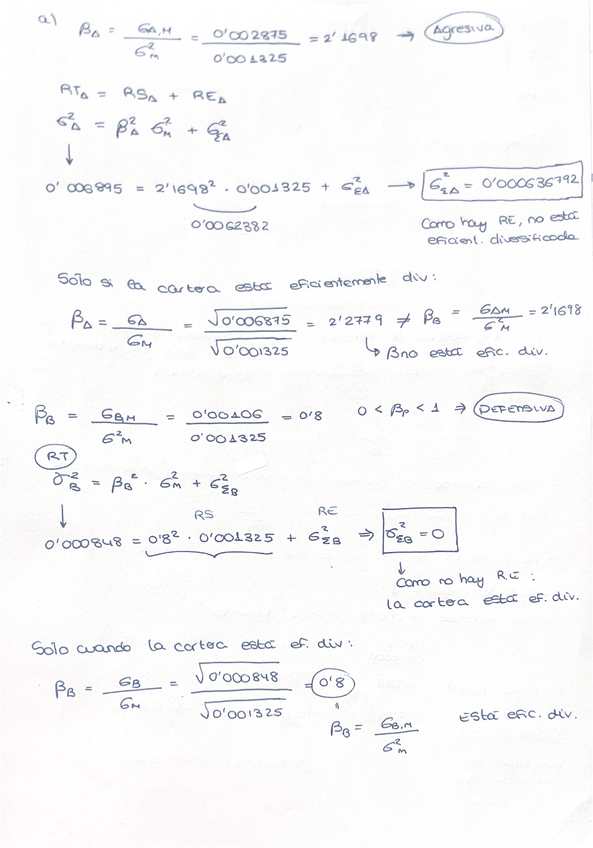 a) βA = σA,M / σ²M = 0'002875 / 0'001325 = 2'1698 → Agresiva
RTA = RSA + REA
σ²A = β²A σ²M + σ²ΣA
↓
0'006895 = 2'1698² · 0'001325 + σ²EA → σ²ΣA = 0'000636792
0'0062382
Como hay RE, no está
eficient. diversificada
Sólo si la cartera está eficientemente div:
βA = σA / σM = √0'006875 / √0'001325 = 2'2779 ≠ βB = σAM / σ²M = 2'1698
↳ βno está efic. div.
βB = σB,M / σ²M = 0'00106 / 0'001325 = 0'8 0 < βp < 1 ⇒ DEFENSIVA
RT
σ²B = βB² · σ²M + σ²ΣB
↓ RS RE
0'000848 = 0'8² · 0'001325 + σ²ΣB ⇒ σ²ΣB = 0
↓
Como no hay RE:
la cartera está ef. div.
Solo cuando la cartera está ef. div:
βB = σB / σM = √0'000848 / √0'001325 = 0'8
"
βB = σB,M / σ²M Está efic. div.